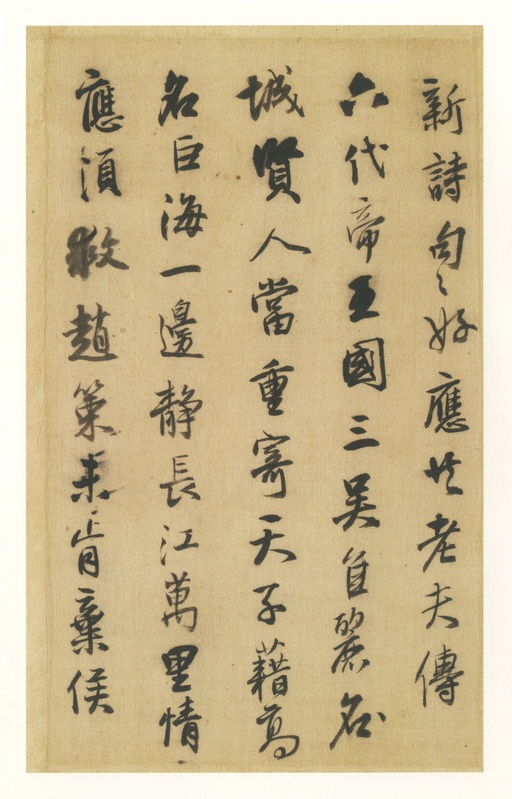 新詩句〻好應共老夫傳
六代帝王國三吳佳麗
城賢人當重寄天子藉高
名巨海一邊靜長江萬里情
應須救趙策未肯棄侯